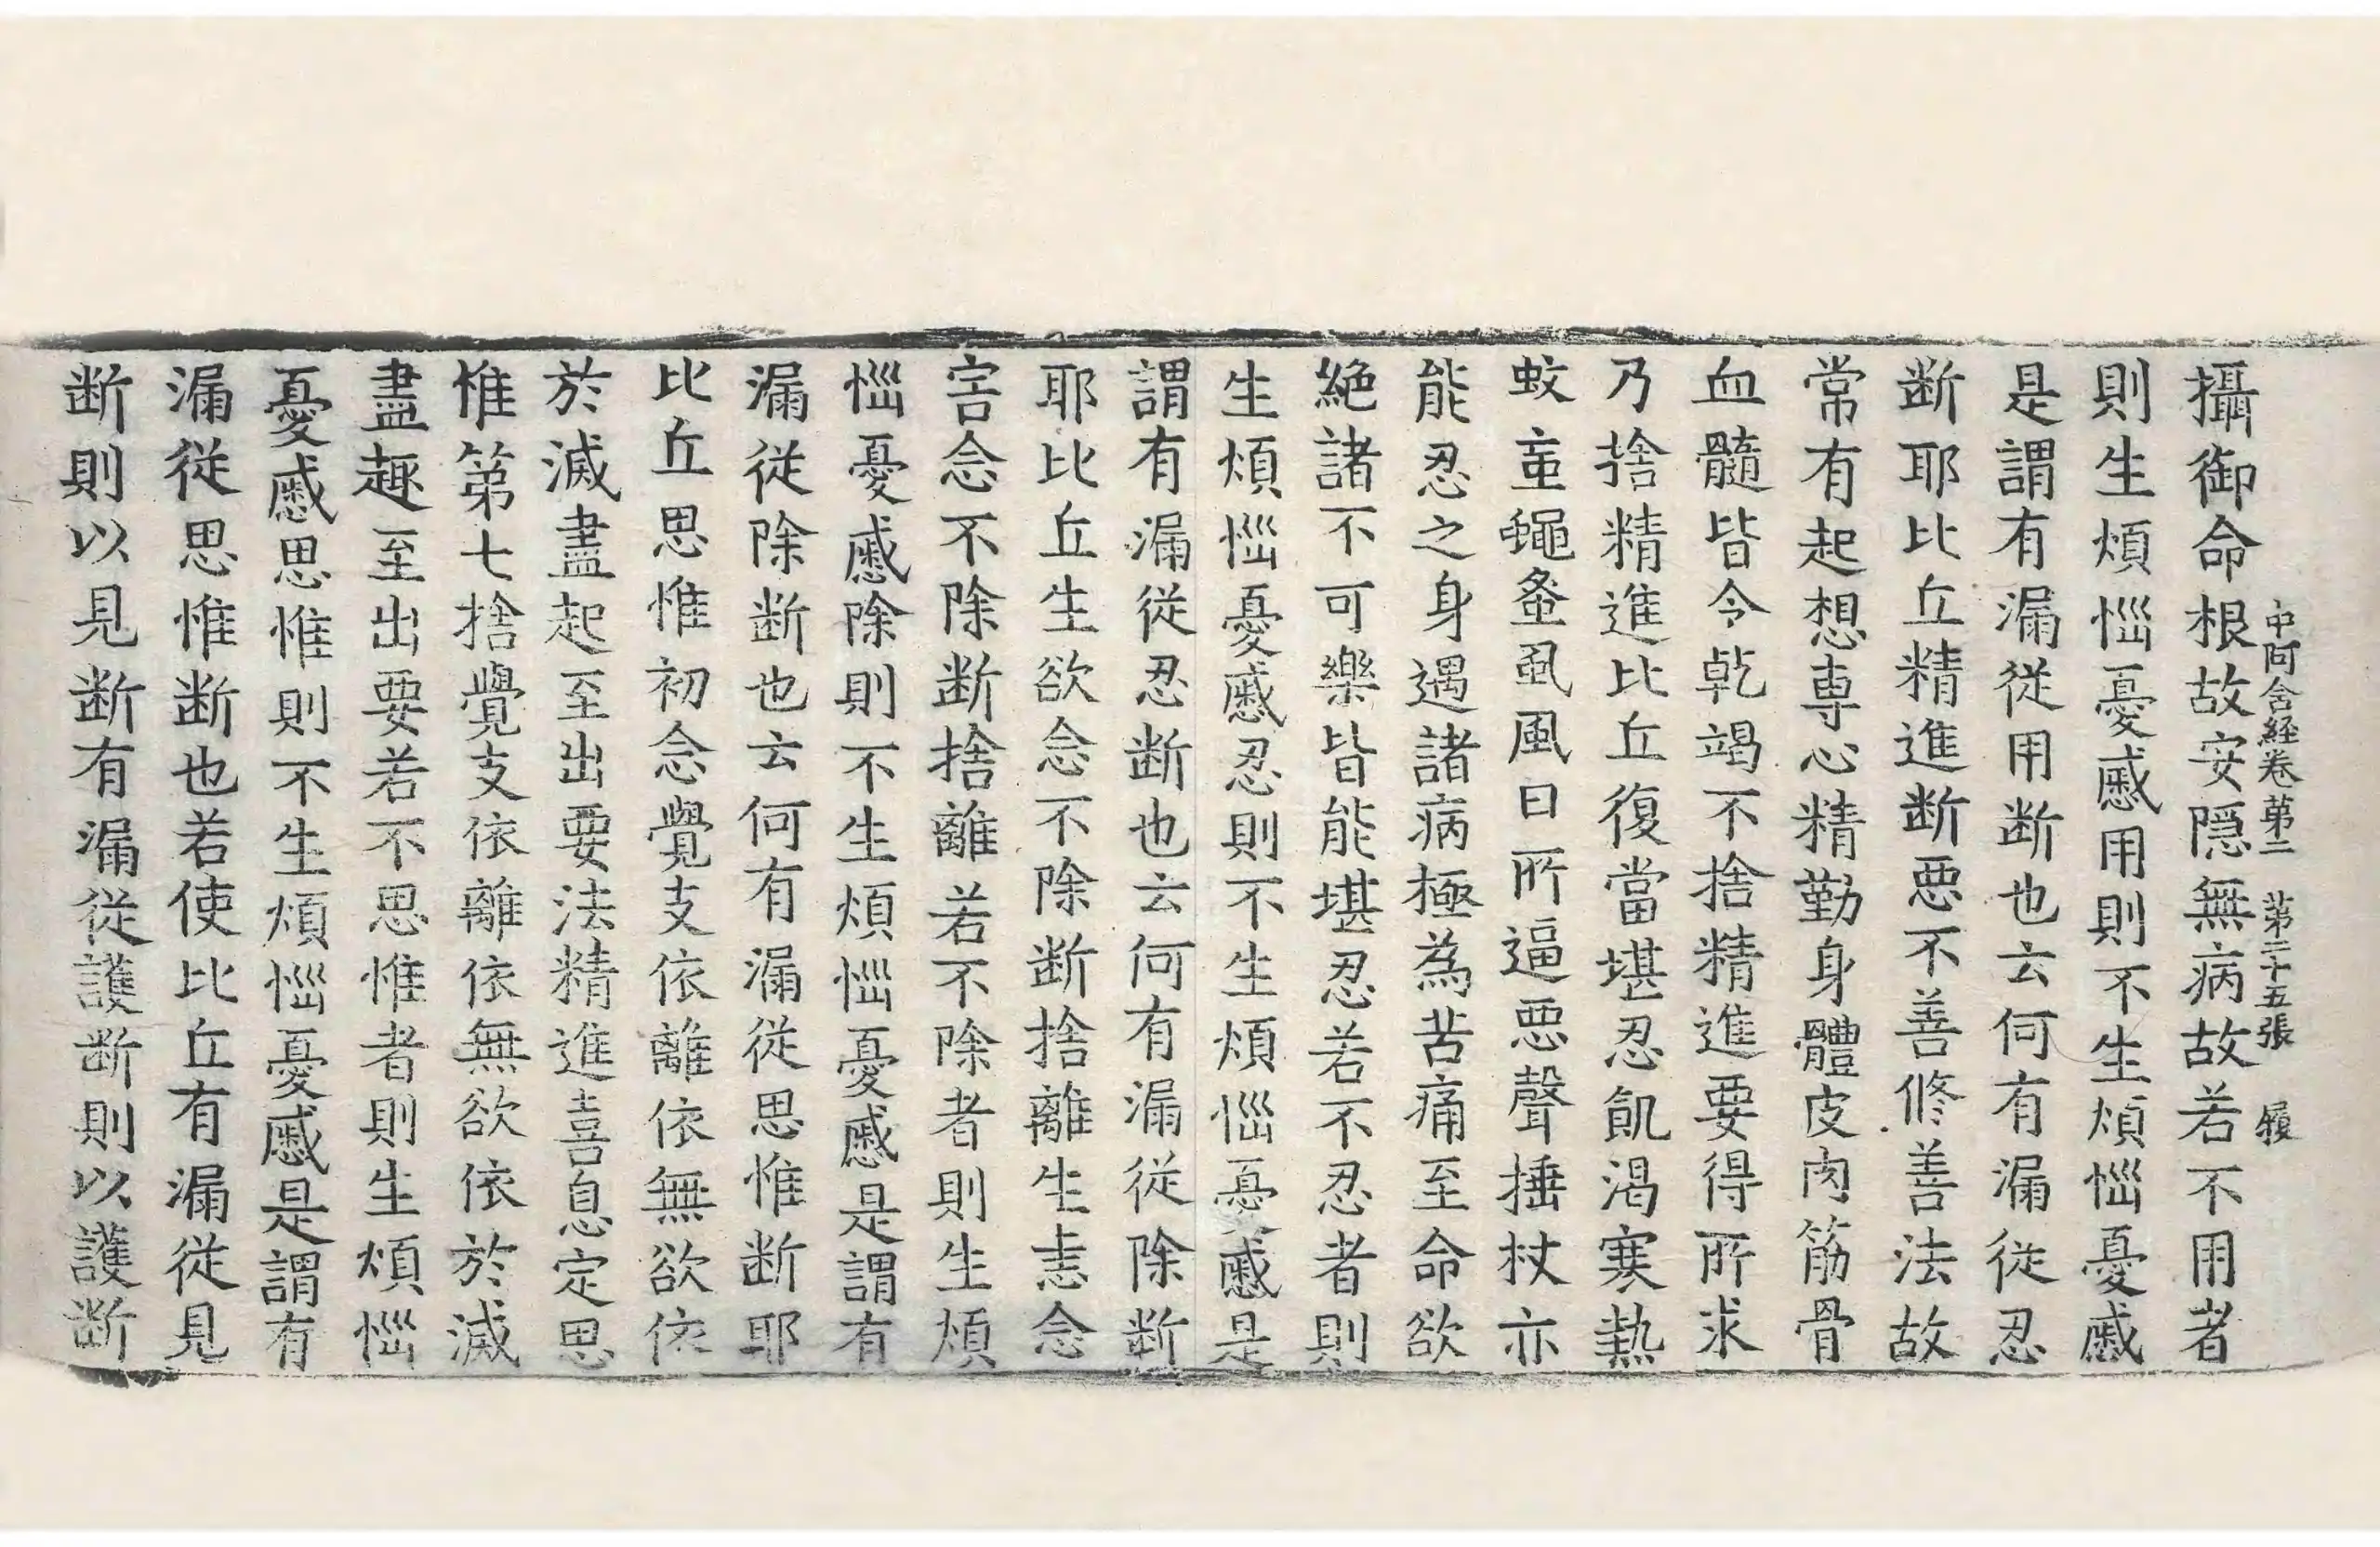 中阿含経卷苐二　苐二十五張　履
攝御命根故安隠無病故若不用者
則生煩惱憂慼用則不生煩惱憂慼
是謂有漏從用断也云何有漏從忍
断耶比丘精進断惡不善修善法故
常有起想専心精勤身體皮肉筋骨
血髓皆令乾竭不捨精進要得所求
乃捨精進比丘復當堪忍飢渴寒熱
蚊䖟蠅蚤虱風日所逼惡聲捶杖亦
能忍之身遇諸病極為苦痛至命欲
絶諸不可樂皆能堪忍若不忍者則
生煩惱憂慼忍則不生煩惱憂慼是
謂有漏從忍断也云何有漏從除断
耶比丘生欲念不除断捨離生恚念
害念不除断捨離若不除者則生煩
惱憂慼除則不生煩惱憂慼是謂有
漏從除断也云何有漏從思惟断耶
比丘思惟初念覺支依離依無欲依
於滅盡起至出要法精進喜息定思
惟苐七捨覺支依離依無欲依於滅
盡趣至出要若不思惟者則生煩惱
憂慼思惟則不生煩惱憂慼是謂有
漏從思惟断也若使比丘有漏從見
断則以見断有漏從護断則以護断